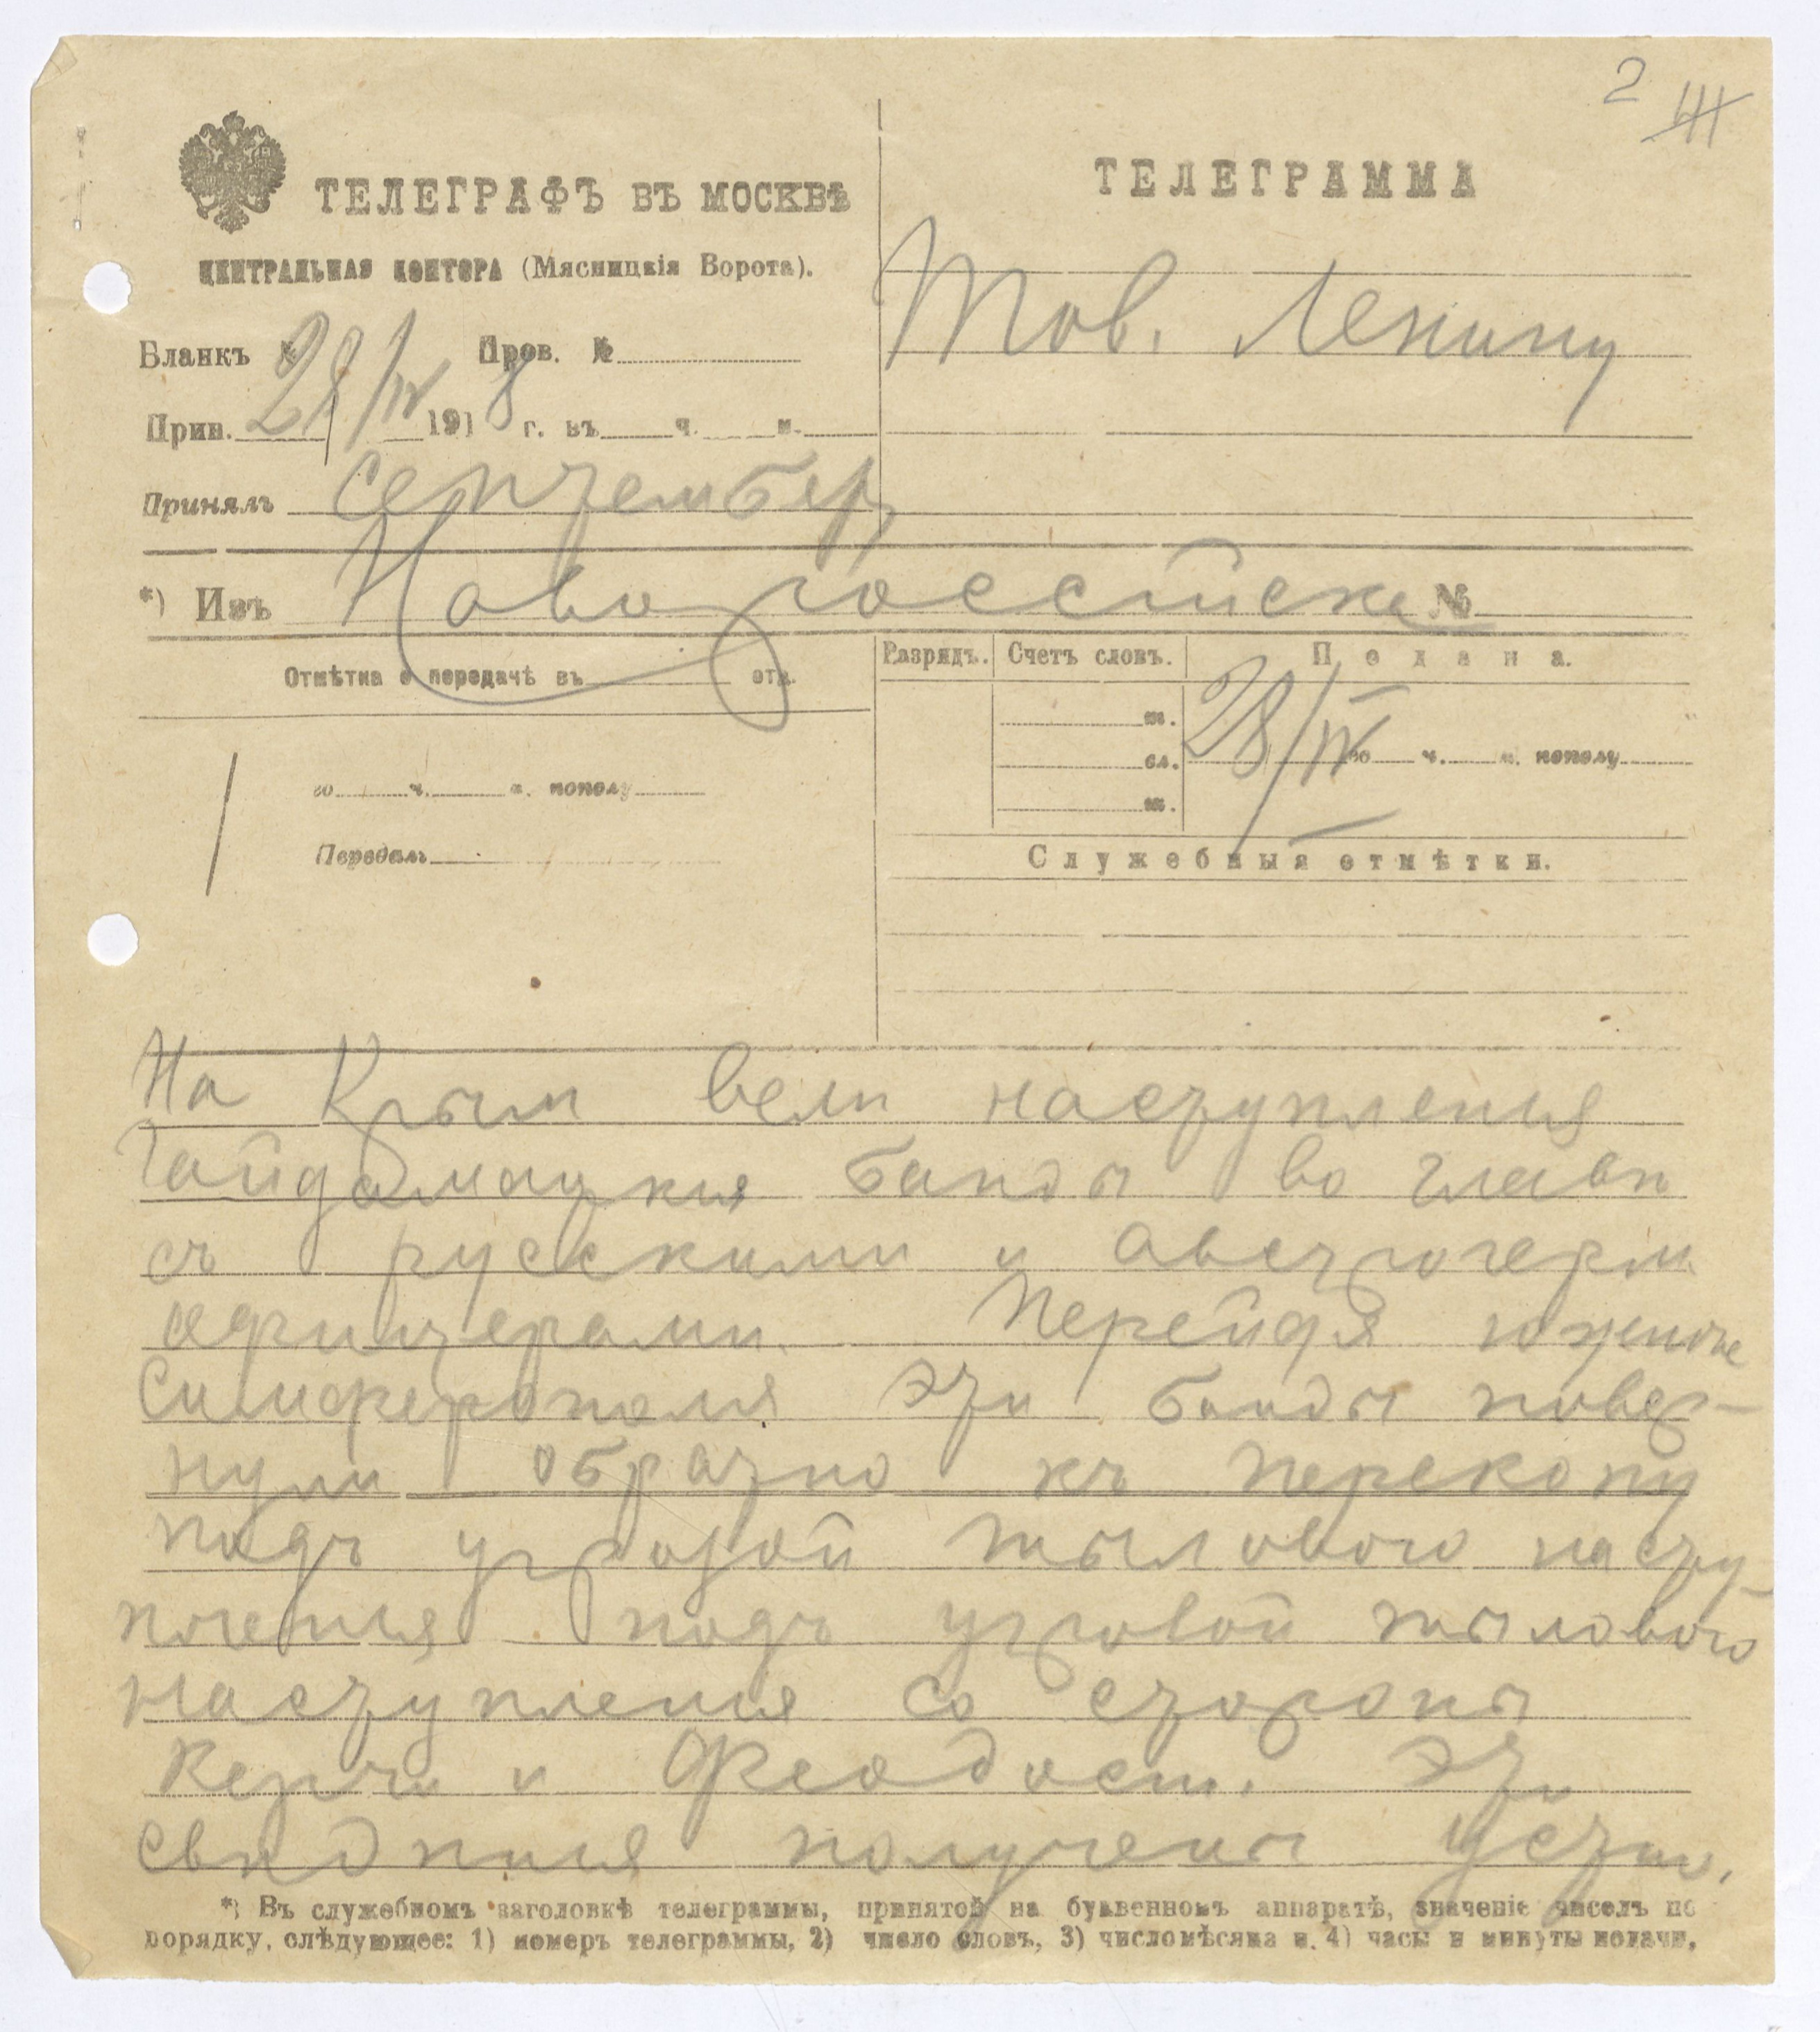 2 III
ТЕЛЕГРАФЪ ВЪ МОСКВѢ
ТЕЛЕГРАММА
ЦЕНТРАЛЬНАЯ КОНТОРА (Мясницкія Ворота).
Тов. Ленину
Бланкъ № Пров. №
Прин. 28/IV 1918 г. въ ч. м.
Принялъ Септембер
*) Изъ Новороссійска №
Отмѣтка о передачѣ въ отд.
Разрядъ. Счетъ словъ. Подана.
пл.
сл. 28/IV го ч. м. пополу
пл.
го ч. м. пополу
Передалъ
Служебныя отмѣтки.
На Крым вели наступления
Гайдамацкия банды во главѣ
съ русскими и австрогерм.
офицерами. Перейдя южнѣе
Симферополя эти банды повер-
нули обратно къ перекопу
подъ угрозой тылового насту-
пления подъ угрозой тылового
наступления со стороны
Керчи и Феодосии. Эти
свѣдѣния получены устно.
*) Въ служебномъ заголовкѣ телеграммы, принятой на буквенномъ аппаратѣ, значеніе чиселъ по
порядку, слѣдующее: 1) номеръ телеграммы, 2) число словъ, 3) число мѣсяца и 4) часы и минуты подачи.